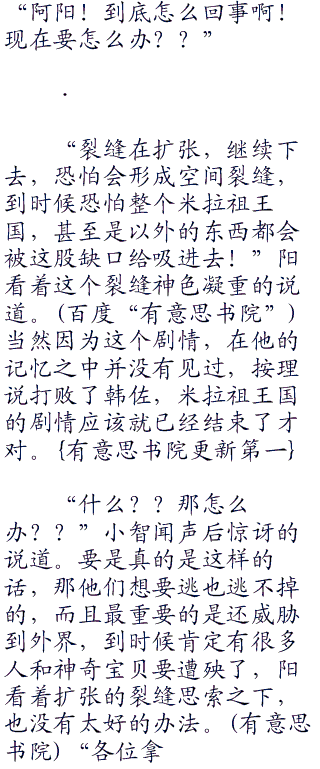 “阿阳！到底怎么回事啊！
现在要怎么办？？”
.
“裂缝在扩张，继续下
去，恐怕会形成空间裂缝，
到时候恐怕整个米拉祖王
国，甚至是以外的东西都会
被这股缺口给吸进去！”阳
看着这个裂缝神色凝重的说
道。(百度“有意思书院”)
当然因为这个剧情，在他的
记忆之中并没有见过，按理
说打败了韩佐，米拉祖王国
的剧情应该就已经结束了才
对。{有意思书院更新第一}
“什么？？那怎么
办？？”小智闻声后惊讶的
说道。要是真的是这样的
话，那他们想要逃也逃不掉
的，而且最重要的是还威胁
到外界，到时候肯定有很多
人和神奇宝贝要遭殃了，阳
看着扩张的裂缝思索之下，
也没有太好的办法。(有意思
书院)“各位拿